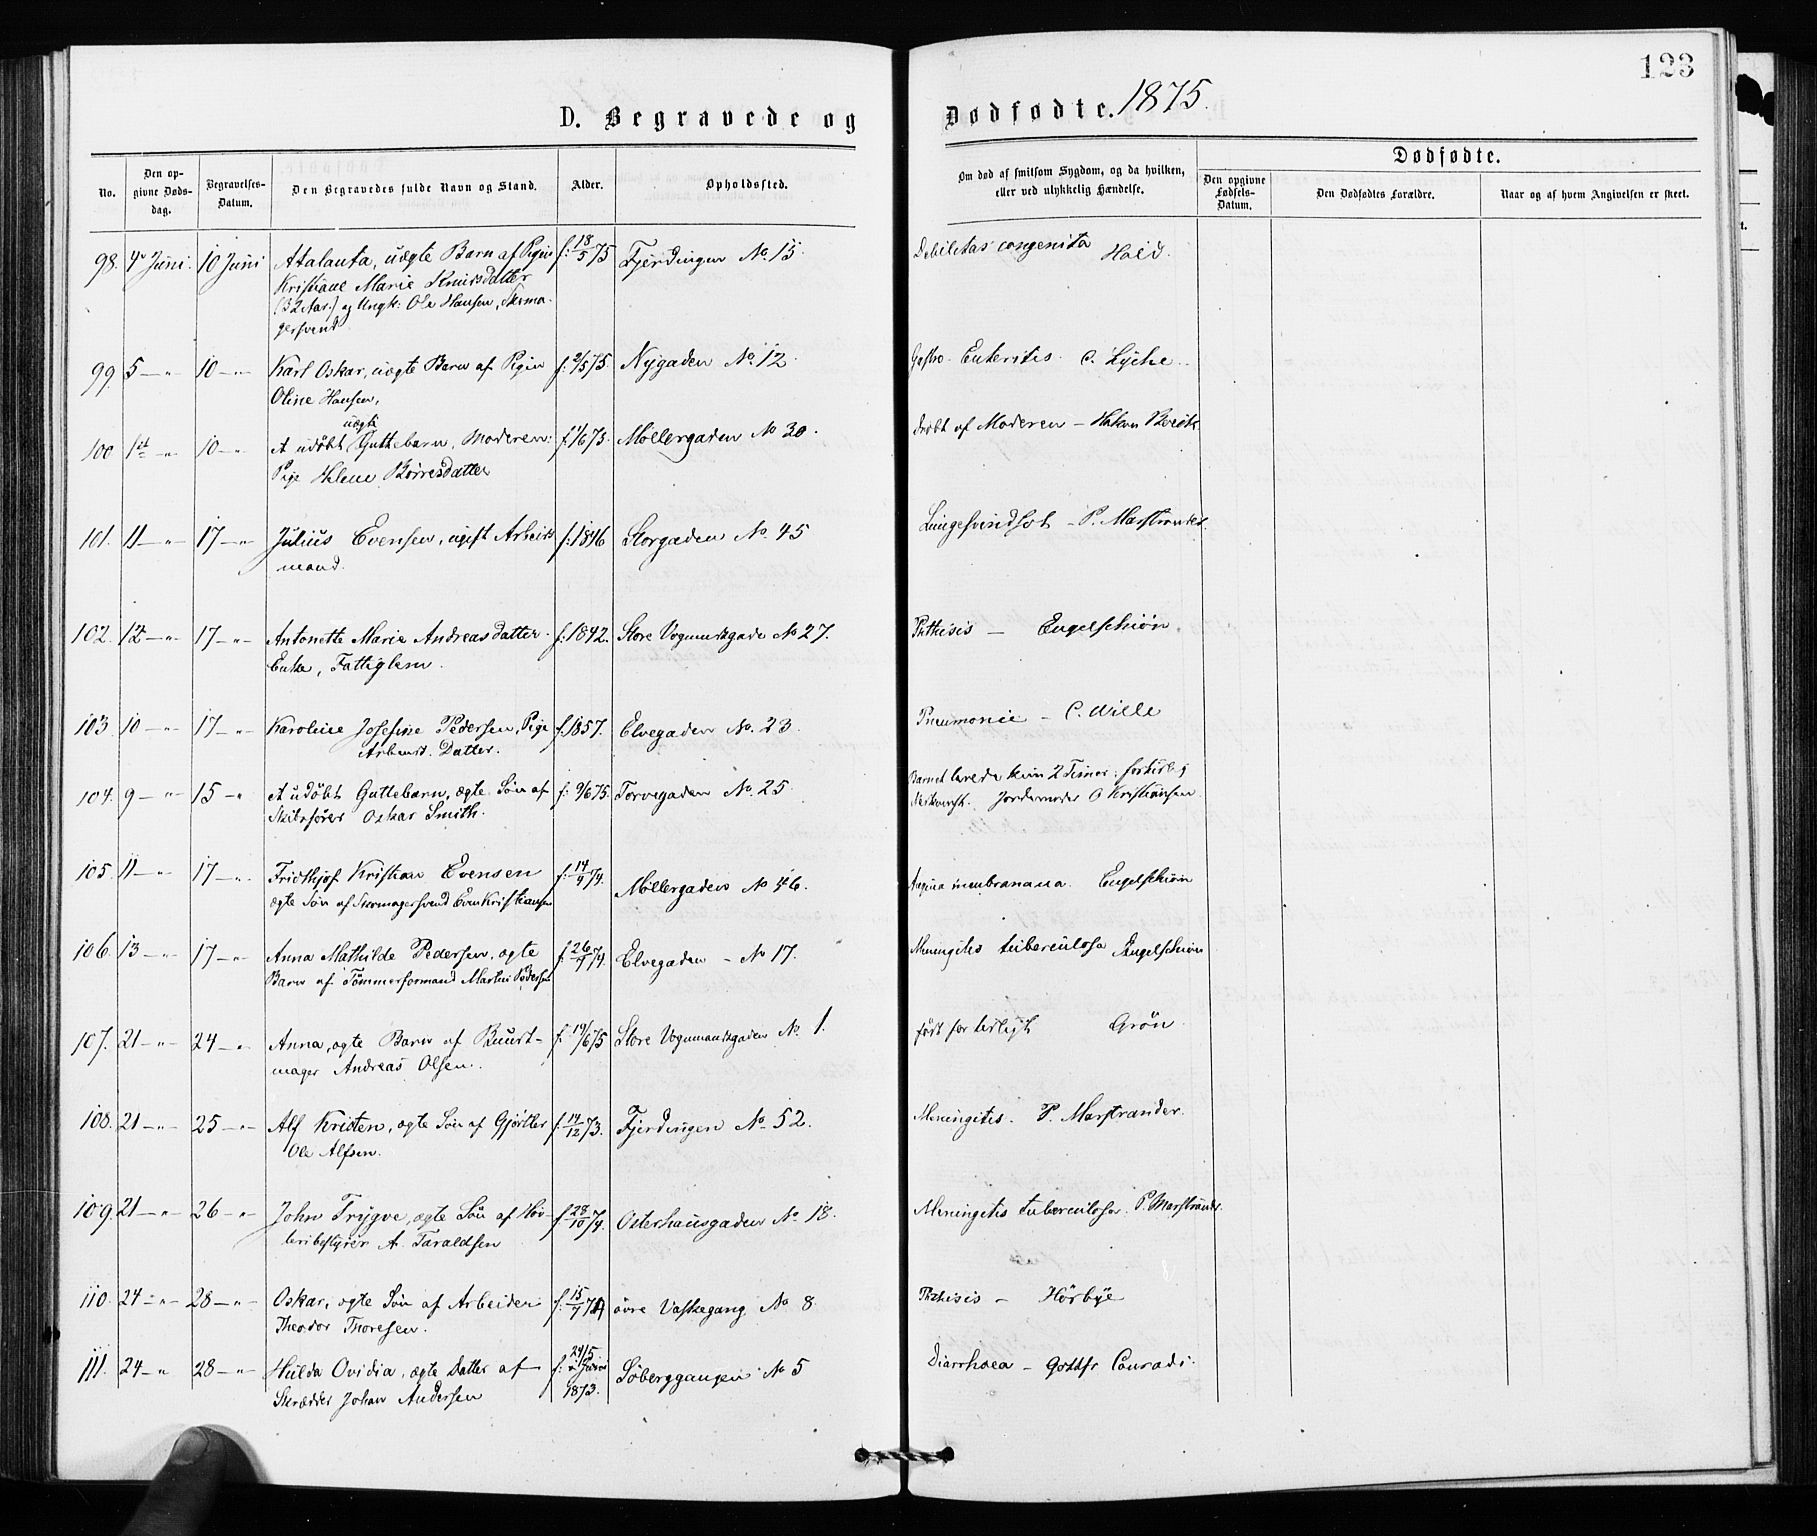 123
D. Begravede og Dødfødte. 1875.
No. Den opgivne Dødsdag. Begravelses-Datum. Den Begravedes fulde Navn og Stand. Alder. Opholdssted. Om død af smitsom Sygdom, og da hvilken, eller ved ulykkelig Hændelse. Dødfødte.
Den opgivne Fødsels-Datum. Den Dødfødtes Forældre. Naar og af hvem Angivelsen er skeet.
98. 4de Juni. 10 Juni Atalanta, uægte Barn af Pigen f. 18/5 75 Fjerdingen No. 15. Debilitas congenita Hald.
Kristiane Marie Knudsdatter
(32 Aar.) og Ungk: Ole Hansen, Skoma-
gersvend.
99. 5 — " 10 — " Karl Oskar, uægte Barn af Pigen f. 2/5 75. Nygaden No. 12. Gastro-Enteritis. C. Lyche.
Oline Hansen,
uægte
100 1ste " 10 — " Et udøbt Guttebarn, Moderen: f. 1/6 75. Møllergaden No 30. Dræbt af Moderen —
Pige Helene Børresdatter
101. 11 — " 17 — " Julius Evensen, ugift Arbeids f. 1846 Storgaden No. 45 Lungesvindsot — P. Marstrander.
mand.
102. 12 — " 17 — " Antonette Marie Andreasdatter. f. 1842. Store Vognmandsgade No 27. Phthisis — Engelschiøn.
Enke, Fattiglem.
103 10 — " 17 — " Karoline Josefine Pedersen, Pige f. 1857. Elvegaden No. 23. Pneumonie — C. Wille
Arbeidsm. Datter.
104. 9 — " 15 — " Et udøbt Guttebarn, ægte Søn af f. 9/6 75. Torvegaden No. 25. Barnet levede kun 2 Timer: fortidlig
Skibsfører Oskar Smith. Jordemoder O Kristiansen.
105. 11 — " 17 — " Fridthjof Kristian Evensen f. 14/9 74. Møllergaden No 46. Angina membranana. Engelschiøn
ægte Søn af Skomagersvend Even Kristiansen
106. 13 — " 17 — " Anna Mathilde Pedersen, ægte f. 26/9 74. Elvegaden — No 17. Meningitis tuberculosa Engelschiøn
Barn af Tømmerformand Martin Pedersen
107. 21 — " 24 — " Anna, ægte Barn af Buust- f. 19/6 75 Store Vognmandsgaden No 1. født for tidligt Grøn.
mager Andreas Olsen.
108. 21 — " 25 — " Alf Kristen, ægte Søn af Gjørtler f. 14/12 73. Fjerdingen No. 52. Meningitis. P. Marstrander.
Ole Alfsen.
109. 21 — " 26 — " John Trygve, ægte Søn af Høv- f. 28/10 74. Osterhausgaden No 18. Meningitis tuberculosa. P. Marstrander.
leribestyrer A. Taraldsen
110. 24 — " 28 — " Oskar, ægte Søn af Arbeider f. 15/7 74 øvre Vaskegang No 8. Phthisis — Hørbye
Theodor Thoresen.
111. 24 — " 28 — " Hulda Ovidia, ægte Datter af f. 24/5 Søberggangen No 5 Diarrhoea — Gottfr Conradi.
Skrædder Johan Andersen 1873.